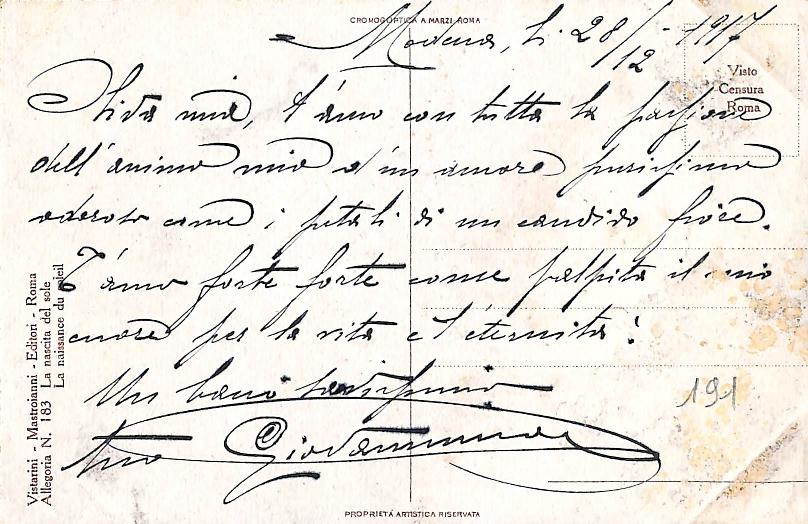 CROMOGOPTICA A MARZI ROMA
Modena, li 28/12 - 1917
Visto
Censura
Roma
mia, t'amo con tutta la passione
dell'animo mio d'un amore purissimo
odoroso come i petali di un candido fiore.
T'amo forte forte come palpita il mio
cuore per la vita e l'eternità!
Un bacio
tuo Giovannino
191
Vistarini - Mastroianni - Editori - Roma
Allegoria N. 183 La nascita del sole
La naissance du soleil
PROPRIETÁ ARTISTICA RISERVATA